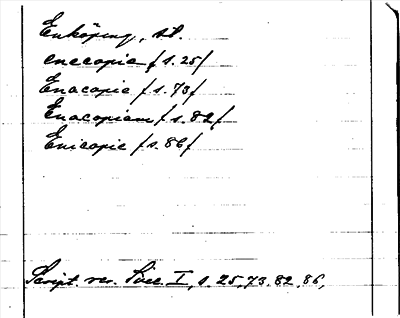 Enköping, st.
enecopie /s. 25/
Enacopie /s. 73/
Enacopiam /s. 82/
Enicopie /s. 86/
Script. rer. Suec. I, s. 25, 73, 82, 86,